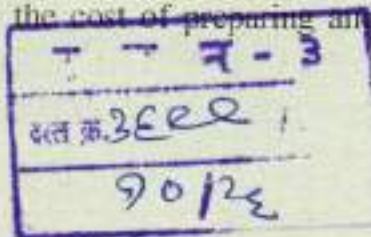 the cost of preparing an
न - ३
दस्त क्र. ३६९९ /
१०/२६